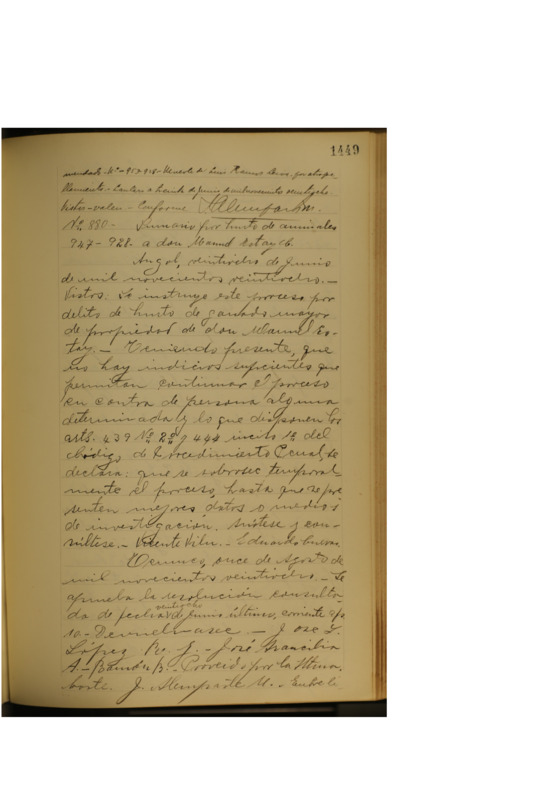 1449
mandado N.º 957-928 Muerte de Luis Ramos
Vistos - valen - Conforme
Nº 880 - Sumario por hurto de animales
947-928. a don Manuel Estay Ch.
Angol, veintiocho de Junio
de mil novecientos veintiocho. -
Vistos: Se instruye este proceso por
delito de hurto de ganado mayor
de propiedad de don Manuel Es-
tay. - Teniendo presente, que
no hay indicios suficientes que
permitan continuar el proceso
en contra de persona alguna
determinada y lo que disponen los
arts. 439 Nº 2º y 444 inciso 1º del
Código de Procedimiento Penal, se
declara: que se sobresee temporal-
mente el proceso, hasta que se pre
senten mejores datos o medios
de investigación. Anótese y con-
súltese. - Vicente Vilu. - Eduardo Cuevas
Temuco, once de Agosto de
mil novecientos veintiocho. - Se
aprueba la resolución consulta-
da de fecha veintiocho de Junio último, corriente a fs
10 - Devuélvase. - José L.
López Pe. J. - José Arancibia
A. - Ramón B. - Proveído por la Iltma.
Corte. J. M.